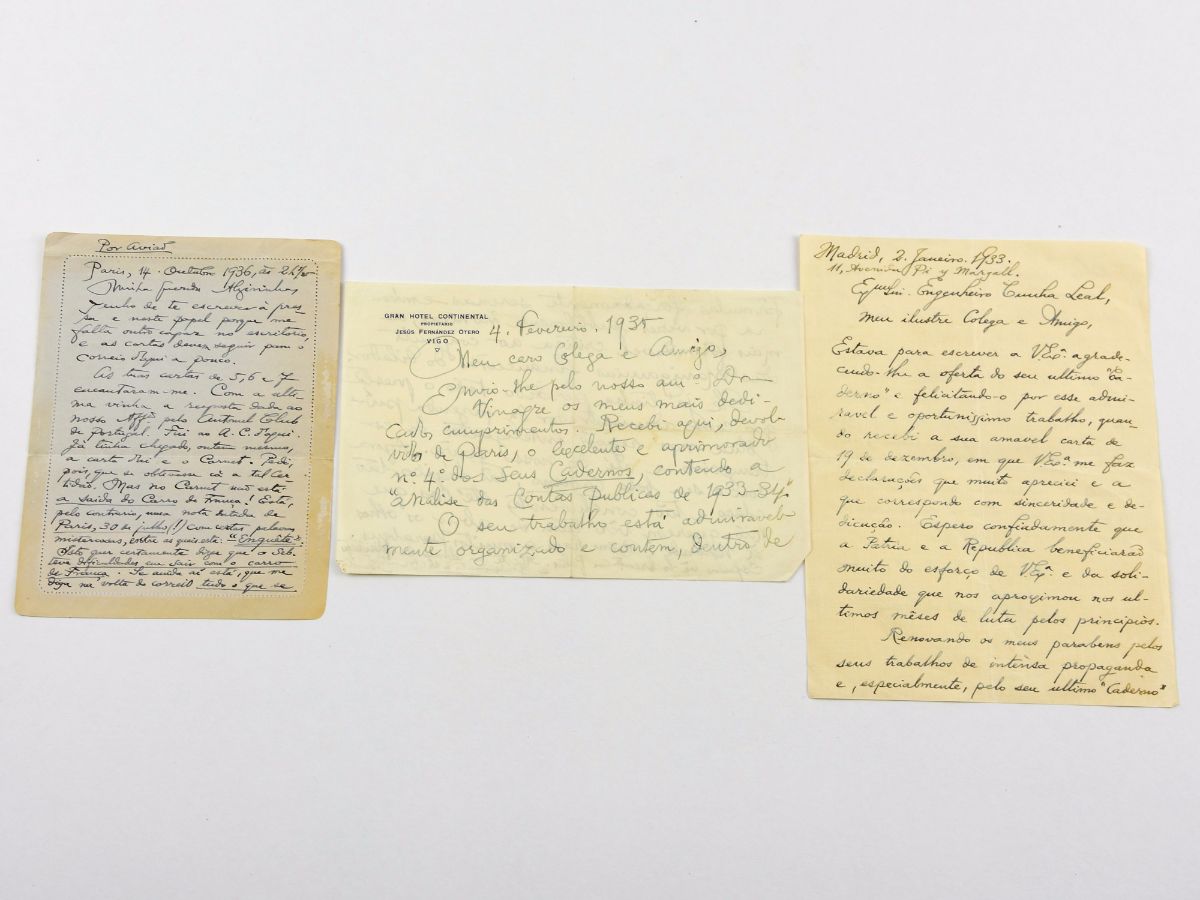 Por Avião
Paris, 14. Outubro 1936, ás
Minha querida Alzirinha,
Tenho de te escrever á pres-
sa e neste papel porque me
falta outro no escritorio,
e as cartas devem seguir para o
correio daqui a pouco.
As tuas cartas de 5, 6 e 7
encantaram-me. Com a ulti-
ma vinha a resposta dada ao
nosso pelo Automel Club
de Portugal. Fui ao A. C. daqui.
Já tinha chegado, ontem mesmo,
a carta e o Carnet. Pedi,
pois, que se obtivesse cá a tal cer-
tidão. Mas no Carnet não está
a saída do Carro de França! Está,
pelo contrario, uma nota datada de
Paris, 30 de julho (!) com certas palavras
misteriosas, entre as quais está: "Enquête".
Isto quer certamente dizer que o Seb.
teve dificuldades em sair com o carro
de França. Se ainda aí está, que me
diga na volta do correio tudo o que se
GRAN HOTEL CONTINENTAL
PROPIETARIO
JESÚS FERNÁNDEZ OTERO
VIGO
4. Fevereiro. 1935
Meu caro Colega e Amigo,
Envio-lhe pelo nosso am.º Dr.
Vinagre os meus mais dedi-
cados cumprimentos. Recebi aqui, devol-
vido de Paris, o excelente e aprimorado
nº 4º dos seus Cadernos, contendo a
"análise das Contas Publicas de 1933-34".
O seu trabalho está admiravel-
mente organizado e contém, dentro de
Madrid, 2. Janeiro. 1933.
11, Avenida Pi y Margall.
Exmo Snr. Engenheiro Cunha Leal,
Meu ilustre Colega e Amigo,
Estava para escrever a V. Exª. agrade-
cendo-lhe a oferta do seu ultimo "Ca-
derno" e felicitando-o por esse admi-
ravel e oportunissimo trabalho, quan-
do recebi a sua amavel carta de
19 de dezembro, em que V. Exª. me faz
declarações que muito apreciei e a
que correspondo com sinceridade e de-
dicação. Espero confiadamente que
a Patria e a Republica beneficiarão
muito do esforço de V. Exª. e da soli-
dariedade que nos aproximou nos ul-
timos mêses de luta pelos principios.
Renovando os meus parabens pelos
seus trabalhos de intensa propaganda
e, especialmente, pelo seu ultimo "Caderno"